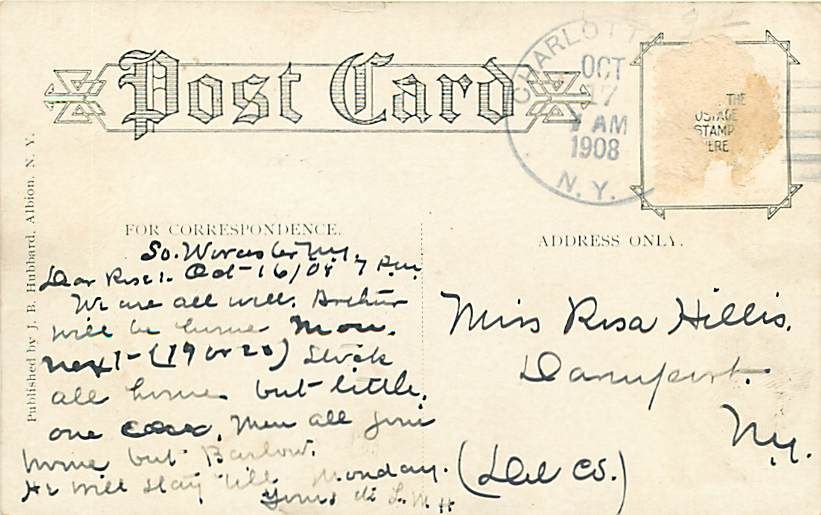 Post Card
CHARLOTT
OCT
17
AM
1908
N. Y.
THE
STAMP
Published by J. B. Hubbard, Albion, N. Y.
FOR CORRESPONDENCE.
So. Worcester N.Y.,
Dear Rose. Oct 16/08 7 P.M.
We are all well. Arthur
will be home Mon.
next (19 or 20) Stock
all home but little
one. Men all gone
home but Barlow.
He will stay till Monday.
Yours L. M. H
ADDRESS ONLY.
Miss Rosa Hillis.
Davenport.
N.y.
(Del Co.)